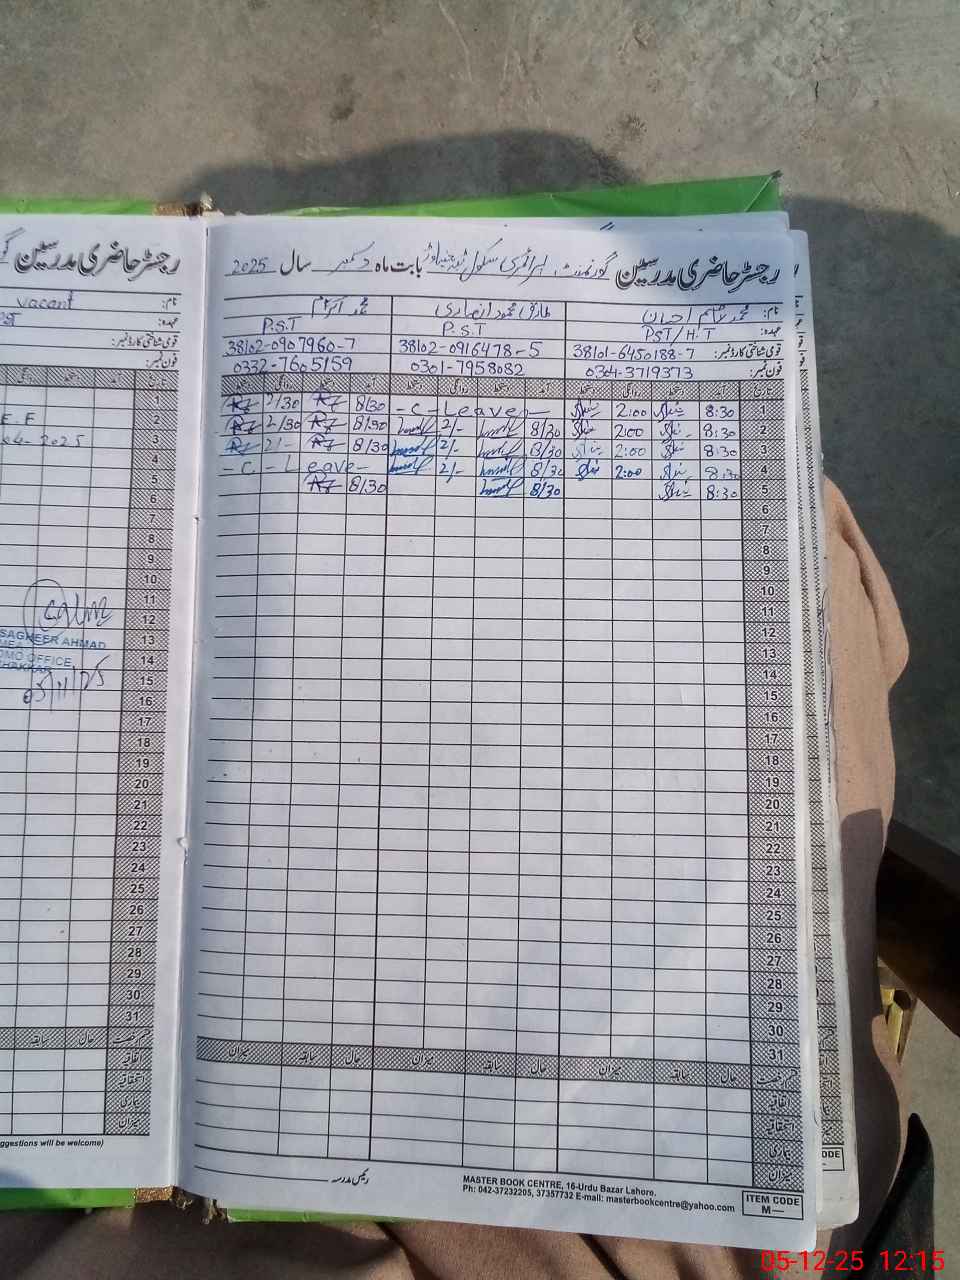 رجسٹر حاضری مدرسین گورنمنٹ پرائمری سکول بابت ماہ دسمبر سال 2025
نام: محمد قاسم احسان طارق محمود انصاری محمد اکرام
عہدہ: PST/H.T P.S.T P.S.T
قومی شناختی کارڈ نمبر: 38101-6450188-7 38102-0916478-5 38102-0907960-7
فون نمبر: 0304-3719373 0301-7958082 0332-7605159
تاریخ آمد دستخط روانگی دستخط آمد دستخط روانگی دستخط آمد دستخط روانگی دستخط
1 8:30 2:00 -C-Leave- 8/30 2/30
2 8:30 2:00 8/30 2/- 8/30 2/30
3 8:30 2:00 8/30 2/- 8/30 2/-
4 8:30 2:00 8/30 2/- -C-Leave-
5 8:30 8/30 8/30
6
7
8
9
10
11
12
13
14
15
16
17
18
19
20
21
22
23
24
25
26
27
28
29
30
31
قسم رخصت حال سابقہ میزان حال سابقہ میزان حال سابقہ میزان
اتفاقیہ
استحقاقیہ
بیماری
میزان
رئیس مدرسہ
MASTER BOOK CENTRE, 16-Urdu Bazar Lahore.
Ph: 042-37232205, 37357732 E-mail: masterbookcentre@yahoo.com
ITEM CODE
M—
رجسٹر حاضری مدرسین
نام: vacant
عہدہ:
قومی شناختی کارڈ نمبر:
فون نمبر:
تاریخ آمد دستخط روانگی
1
2
3 2025
4
5
6
7
8
9
10
11
12
13 SAGHEER AHMAD
14 MEA
DMO OFFICE,
15 BHAKKAR
16 03/11/25
17
18
19
20
21
22
23
24
25
26
27
28
29
30
31
قسم رخصت حال سابقہ
اتفاقیہ
استحقاقیہ
بیماری
میزان
ggestions will be welcome)
ODE
05-12-25 12:15